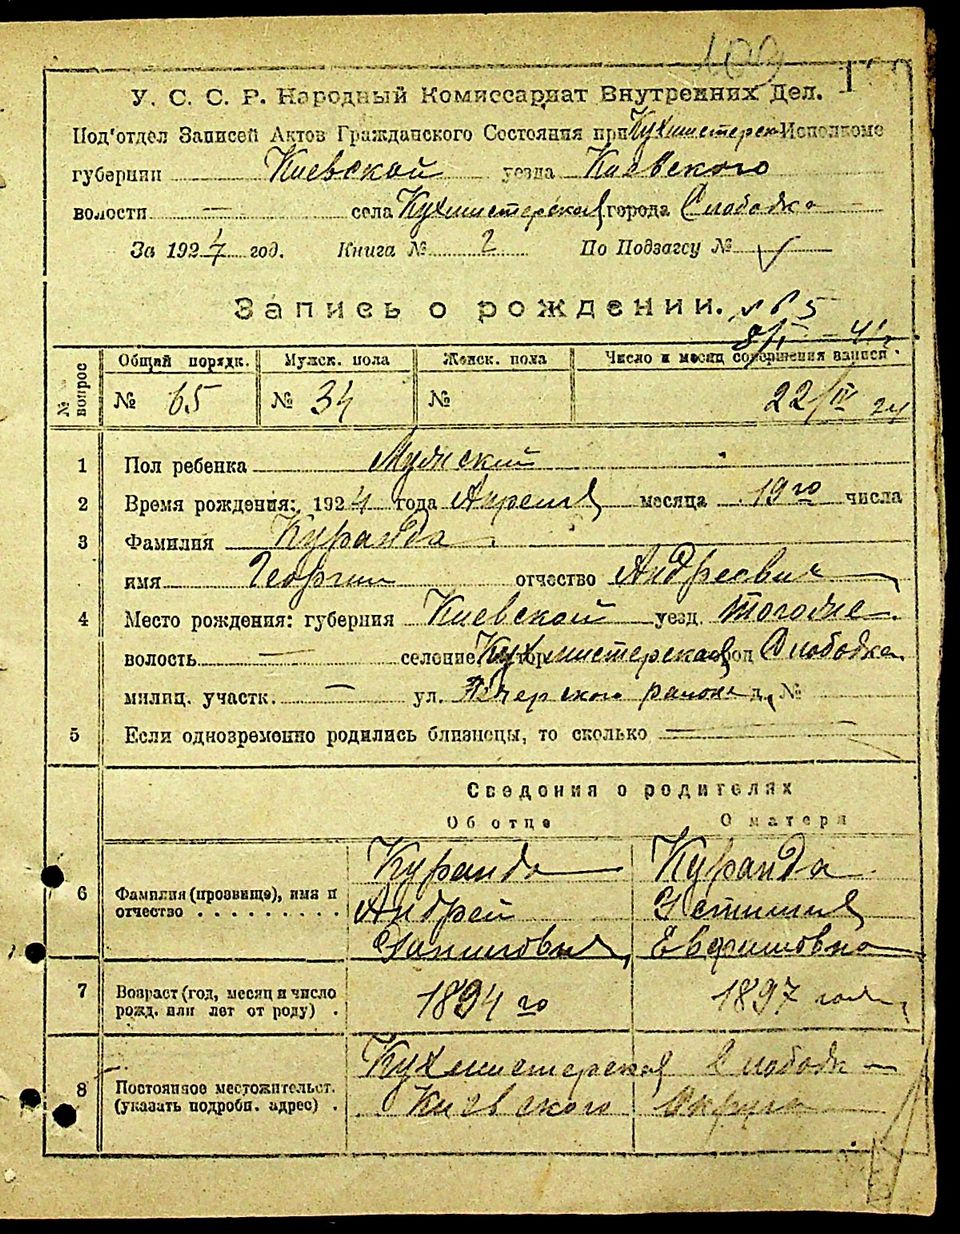 109
У. С. С. Р. Народный Комиссариат Внутренних Дел.
Под'отдел Записей Актов Гражданского Состояния при Кухмистерск. Исполкоме
губернии Киевской уезда Киевского
волости — села Кухмистерская города Слободка
За 1924 год. Книга № 2 По Подзагсу №
Запись о рождении. № 65
Общий порядк. Мужск. пола Женск. пола Число и месяц совершения записи
№ вопрос № 65 № 34 № 22/IV 24
1 Пол ребенка Мужский
2 Время рождения: 1924 года Апреля месяца 19го числа
3 Фамилия Куранда
имя Георгий отчество Андреевич
4 Место рождения: губерния Киевской уезд. тогоже
волость — селение Кухмистерская Слободка
милиц. участк. — ул. Печерского района д. №
5 Если одновременно родились близнецы, то сколько —
Сведения о родителях
Об отце О матери
Куранда Куранда
6 Фамилия (прозвище), имя и отчество Андрей Устиния
Евфимовна
7 Возраст (год, месяц и число рожд. или лет от роду) 1894 го 1897 года
Кухмистерская Слободка
8 Постоянное местожительст. (указать подробн. адрес) Киевского Округа